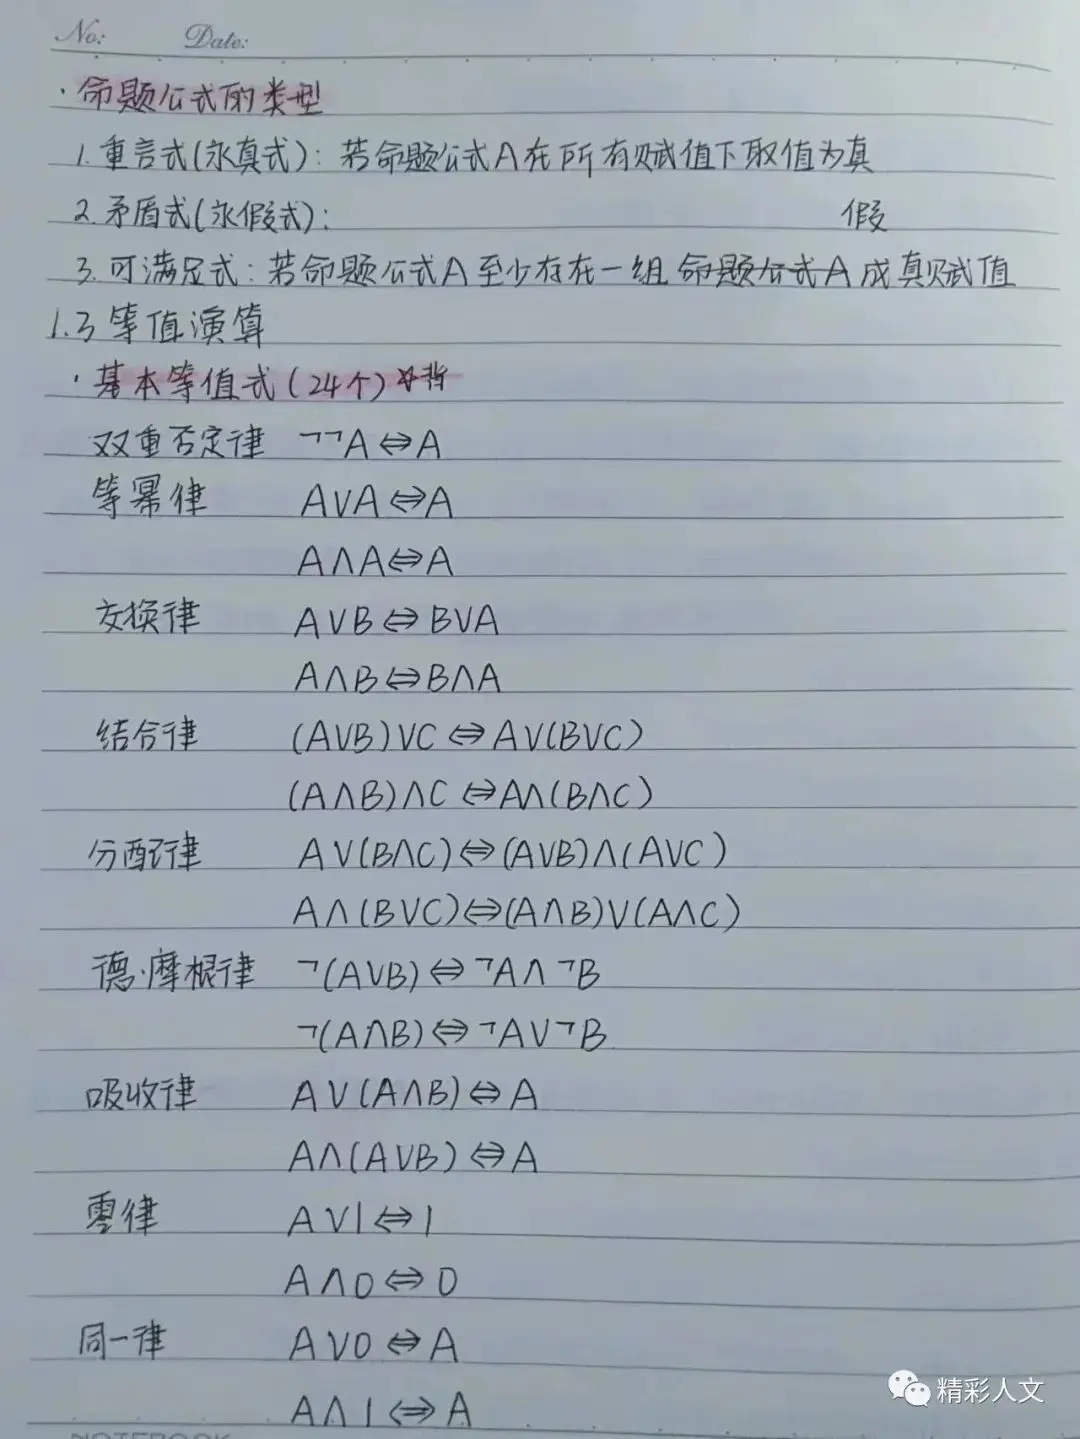 No: Date:
·命题公式的类型
1.重言式(永真式):若命题公式A在所有赋值下取值为真
2.矛盾式(永假式): 假
3.可满足式:若命题公式A至少存在一组命题公式A成真赋值
1.3等值演算
·基本等值式(24个)必背
双重否定律 ¬¬A⇔A
等幂律 A∨A⇔A
A∧A⇔A
交换律 A∨B⇔B∨A
A∧B⇔B∧A
结合律 (A∨B)∨C⇔A∨(B∨C)
(A∧B)∧C⇔A∧(B∧C)
分配律 A∨(B∧C)⇔(A∨B)∧(A∨C)
A∧(B∨C)⇔(A∧B)∨(A∧C)
德·摩根律 ¬(A∨B)⇔¬A∧¬B
¬(A∧B)⇔¬A∨¬B
吸收律 A∨(A∧B)⇔A
A∧(A∨B)⇔A
零律 A∨1⇔1
A∧0⇔0
同一律 A∨0⇔A
A∧1⇔A
精彩人文
NOTEBOOK